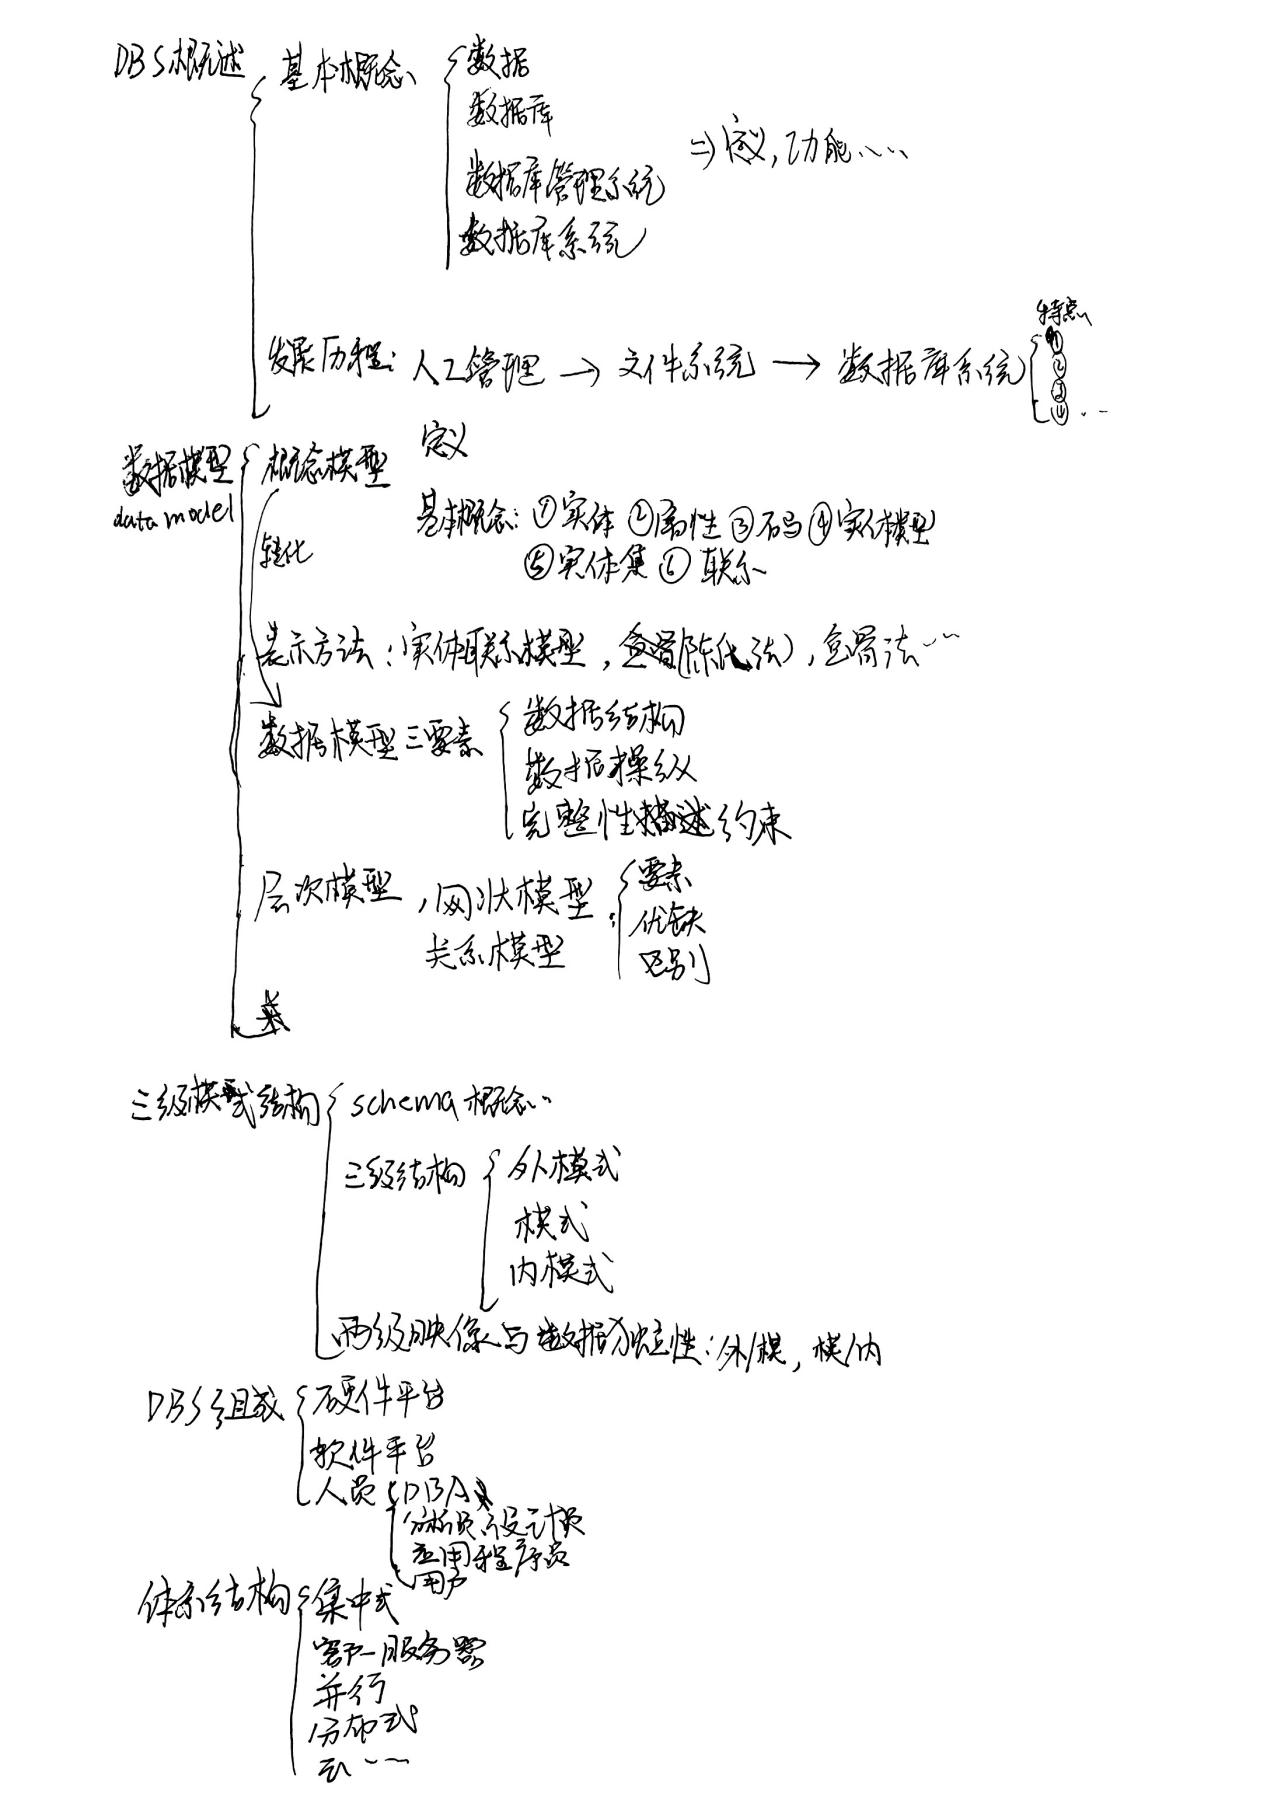 DBS概述
基本概念
数据
数据库
数据库管理系统
数据库系统
⇒定义,功能……
发展历程:人工管理→文件系统→数据库系统
特点
①
②
③
④…
数据模型
data model
概念模型
定义
基本概念:①实体②属性③码④实体模型
⑤实体集⑥联系
转化
表示方法:实体联系模型,鱼骨(陈氏法),鱼骨法……
数据模型三要素
数据结构
数据操纵
完整性描述约束
层次模型,网状模型
关系模型
要素
优缺
区别
三级模式结构
schema概念
三级结构
外模式
模式
内模式
两级映像与数据独立性:外/模,模/内
DBS组成
硬件平台
软件平台
人员
DBA
分析员、设计员
应用程序员
用户
体系结构
集中式
客户-服务器
并行
分布式
云……